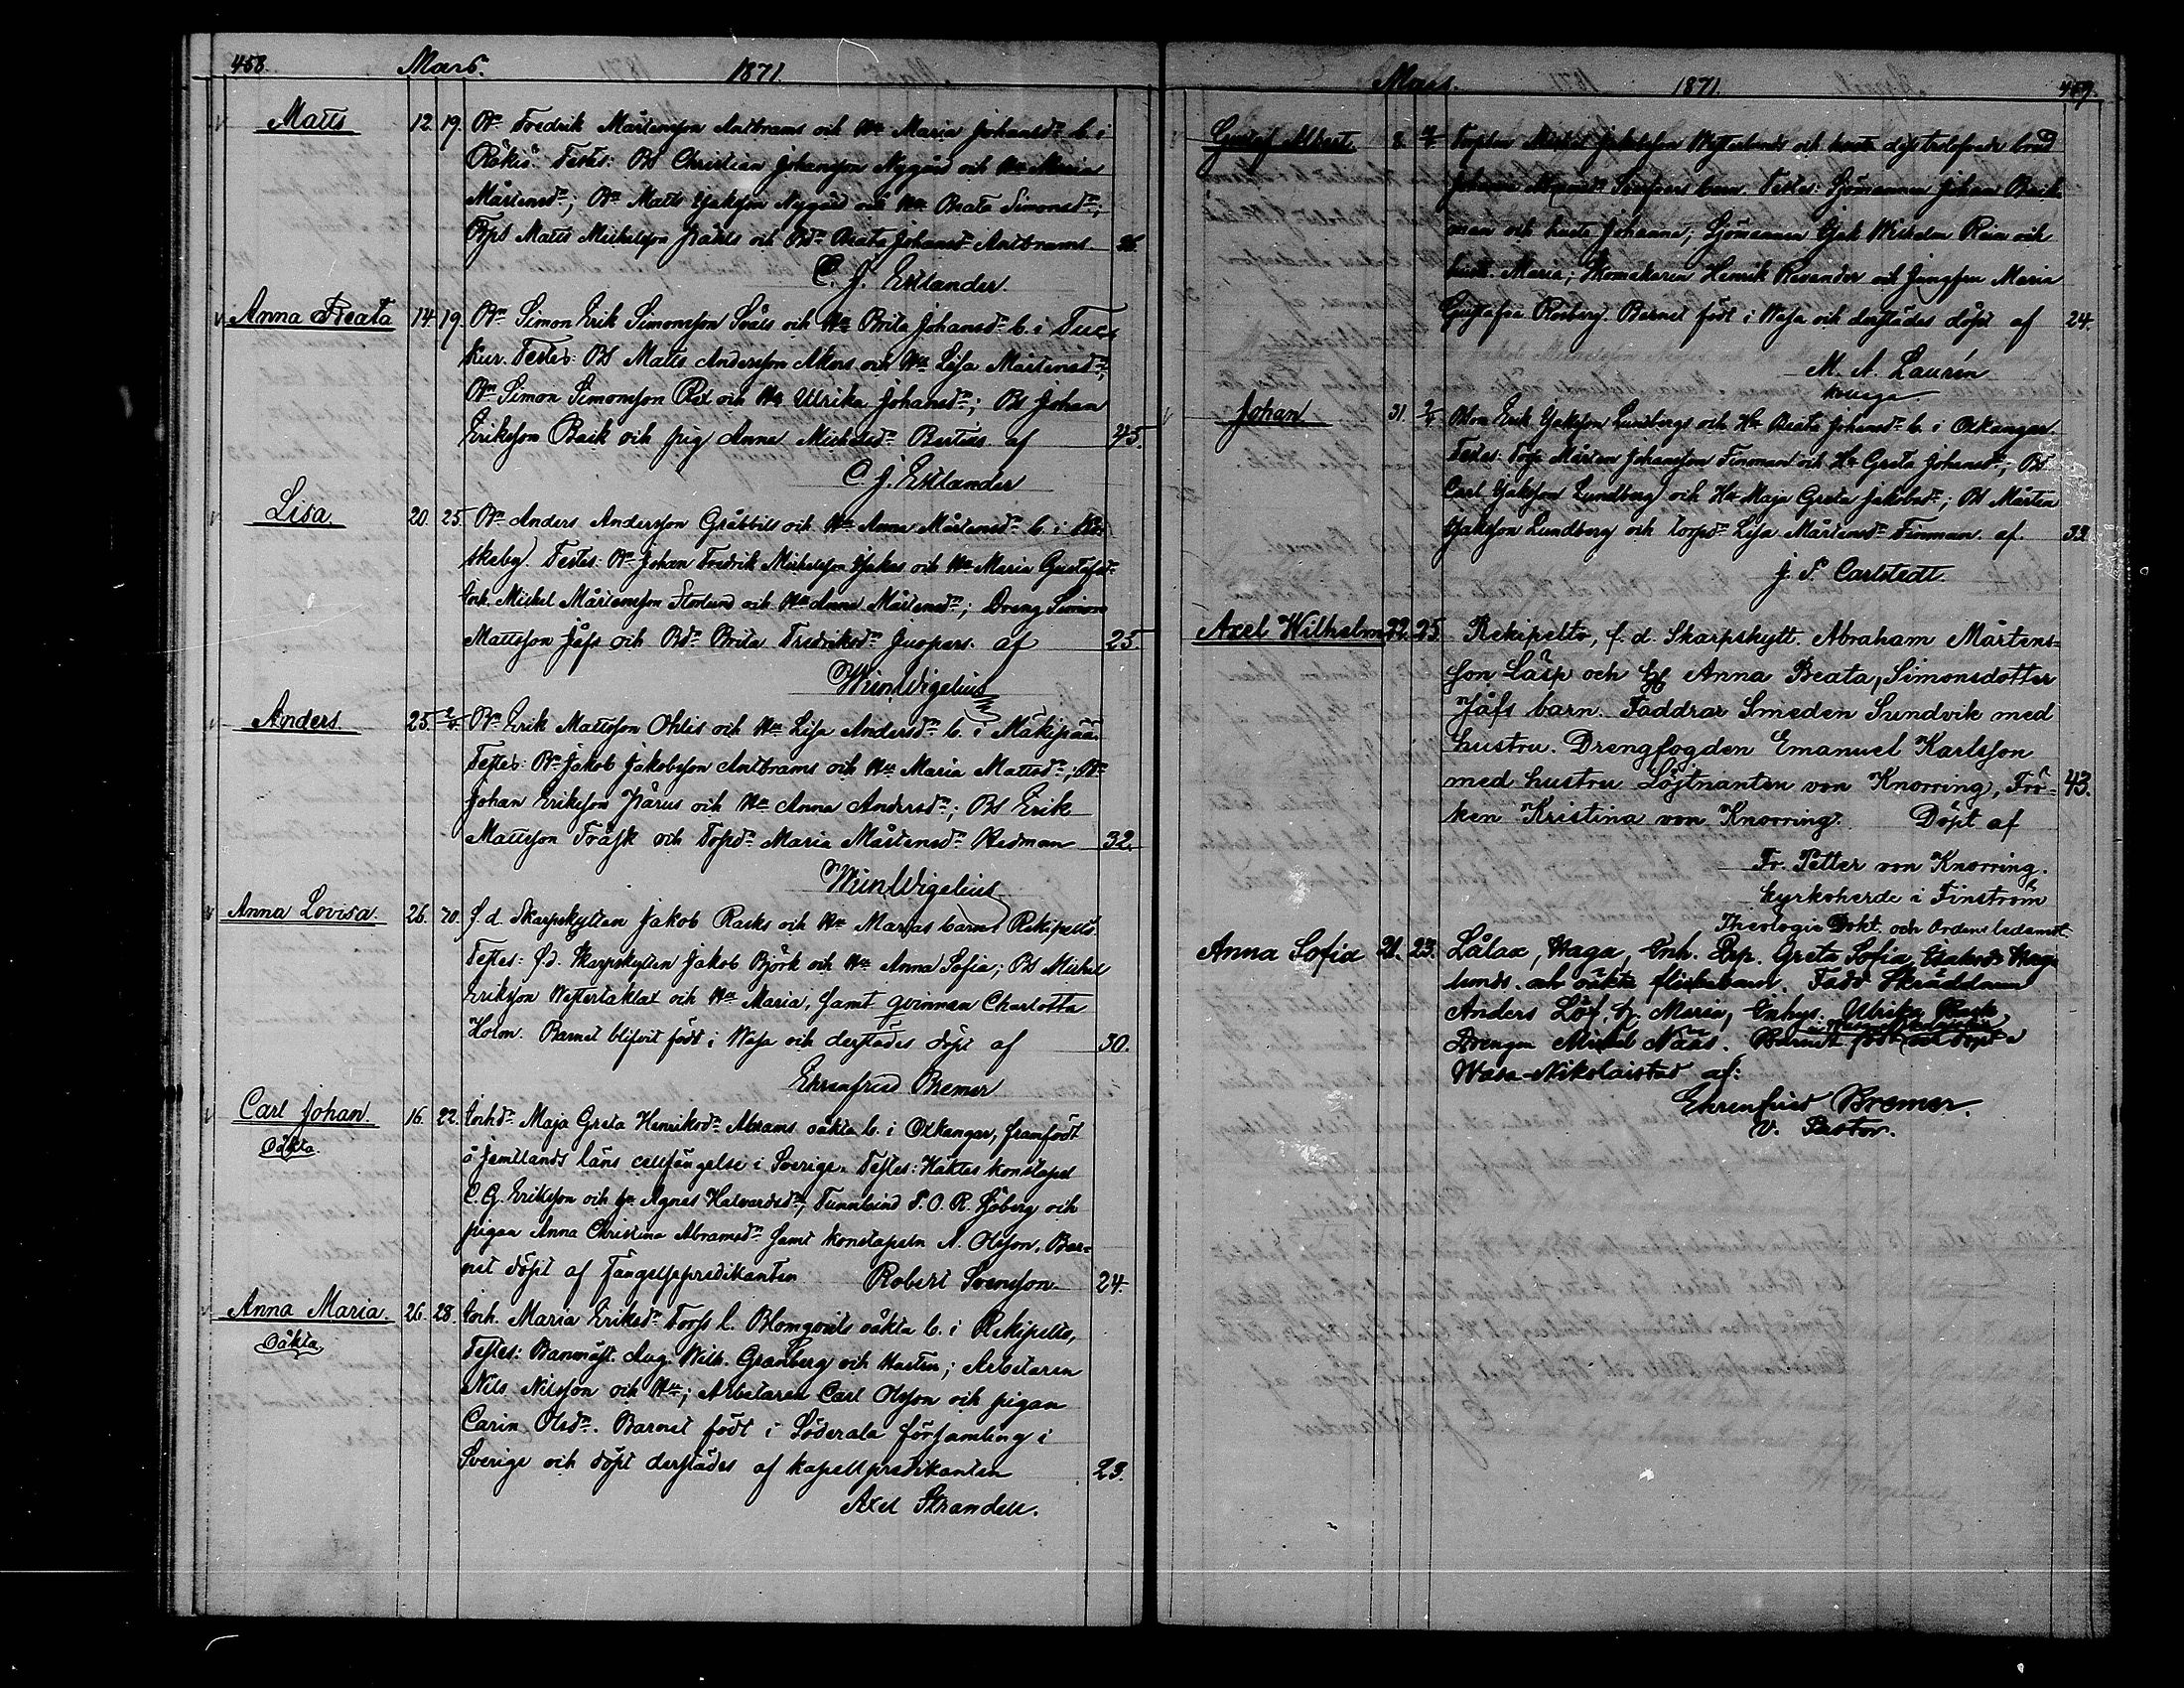 458. Mars. 1871.
Matts 12. 19. Bn Fredrik Mårtensson Antbrams och Hu Maria Johansdr b. i
Röukis. Testes: Bs Christian Johansson Nygård och Hu Maria
Mårtensdr; Bn Matts Isaksson Nygård och Hu Beata Simonsdr;
Bps Matts Michelsson och Bdr Beata Johansdr Antbrams 36.
C. J. Estlander.
Anna Beata 14. 19. Bn Simon Erik Simonsson Svals och Hu Brita Johansdr b. i Tus-
kur. Testes: Bs Matts Andersson Akers och Hu Lisa Mårtensdr;
Bn Simon Simonsson Rex och Hu Ulrika Johansdr; Bs Johan
Eriksson Back och pig Anna Michelsdr Bertils af 45.
C. J. Estlander
Lisa. 20. 25. Bn Anders Andersson Gräbbils och Hu Anna Mårtensdr b. i
skeby. Testes: Bn Johan Fredrik Michelsson och Hu Maria Gustafsdr
Inh. Michel Mårtensson Storlund och Hu Anna Mårtensdr; Dreng Simon
Mattsson Jåfs och Bdr Brita Fredriksdr Juopers. af 25.
Wigelius
Anders. 25. 2/4. Bn Erik Mattsson Ohlis och Hu Lisa Andersdr b. i Mäkipää.
Testes: Bn Jakob Jakobsson Antbrams och Hu Maria Mattsdr; Bn
Johan Eriksson Pärus och Hu Anna Andersdr; Bs Erik
Mattsson Träsk och Topdr Maria Mårtensdr Hedman 32.
Wigelius
Anna Lovisa. 26. f.d. Skarpskytten Jakob Rasks och Hu Marias barn Rekipelto.
Testes: f.d. Skarpskytten Jakob Björk och Hu Anna Sofia; Bs Michel
Eriksson Westertaklax och Hu Maria, samt qvinnan Charlotta
Holm. Barnet blifvit födt i Wasa och derstädes döpt af 30.
Ehrenfried Bremer
Carl Johan. 16. 22. Inhdr Maja Greta Henriksdr Abrams oäkta b. i Otkangar, framfödt
Oäkta. å Jemtlands läns cellfängelse i Sverige. Testes: Häktes konstapel
C. G. Eriksson och Hu Agnes Halvardsdr; Tunnbind P. O. R. Sjöberg och
pigan Anna Christina Abramsdr samt konstapeln A. Olsson. Bar-
net döpt af Fängelsepredikanten Robert Svensson 24.
Anna Maria. 26. 28. Inh. Maria Eriksdr Torp l. Blomqvists oäkta b. i Rekipelto,
Oäkta Testes: Banmäst. Aug. Wilh. Granberg och Hustru; Arbetaren
Nils Nilsson och Hu; Arbetaren Carl Olsson och pigan
Carin Olsdr. Barnet födt i Söderala församling i
Sverige och döpt derstädes af kapellpredikanten 23.
Axel Strandell.
Mars. 1871. 459.
Gustaf Albert. 8. Torpden Michel Jakobsson Westerlunds och dess trolofvade brud
Johanna barn. Testes: Sjömannen Johan Back-
man och hustr Johanna; Sjömannen Isak Wilhelm Rein och
hustr. Maria; Skomakaren Henrik Revander och Jungfru Maria
Gustafva Rosberg. Barnet födt i Wasa och derstädes döpt af 24.
M. A. Laurén
Kollega
Johan 31. Bson Erik Isaksson Lundbergs och Hu Beata Johansdr b. i Otkangar.
Testes: Torp Mårten Johansson Finnman och Hu Greta Johansdr; Bs
Carl Isaksson Lundberg och Hu Maja Greta Jakobsdr; Bs Mårten
Isaksson Lundberg och torpdr Lisa Mårtensdr Finnman. af 33.
J. F. Carlstedt.
Axel Wilhelm 22. 25. Rekipelto, f. d. Skarpskytt. Abraham Mårtens-
son Läsp och H Anna Beata, Simonsdotter
Jåfs barn. Faddrar Smeden Sundvik med
hustru. Drengfogden Emanuel Karlsson
med hustru Löjtnanten von Knorring, Frö- 43.
ken Kristina von Knorring. Döpt af
Fr. Petter von Knorring.
kyrkoherde i Finström
Theologie Dokt. och Ordens ledamot.
Anna Sofia 21. 23. Lålax, Haga, Inh. Greta Sofia, Haga
lunds. oäkta flickebarn. Fadd Skräddaren
Anders Löf, h. Maria, Inhys. Ulrika Back
Drengen Michel Näs. Barnet född och döpt i
Wasa-Nikolaistad af:
Ehrenfried Bremer.
V. Pastor.